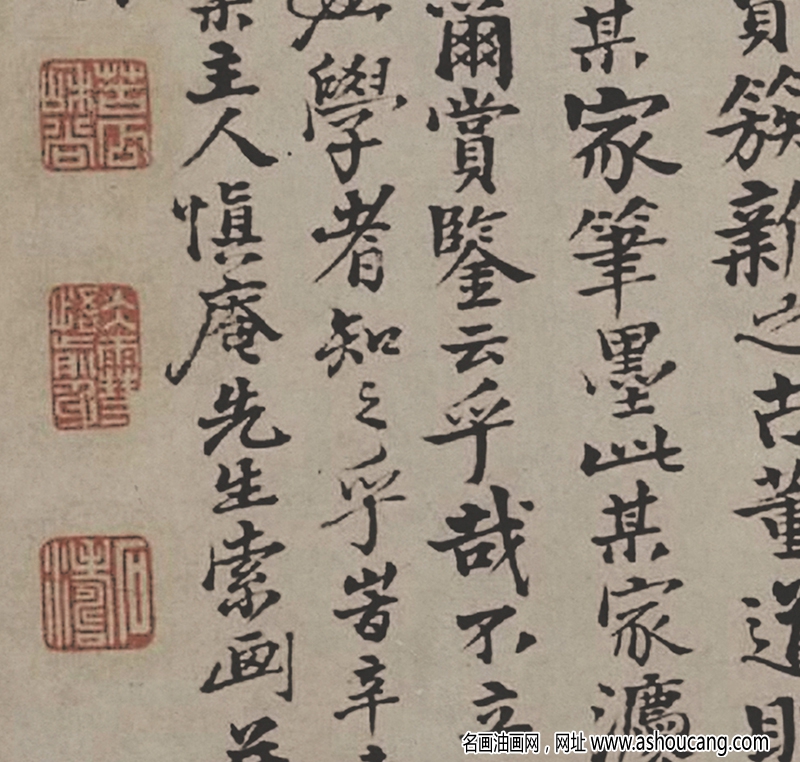 貨簇新之古董道眼
某家筆墨此某家灋
爾賞鑒云乎哉不立
也學者知之乎峕辛
主人慎庵先生索画并
石濤
名画油画网，网址 www.ashoucang.com